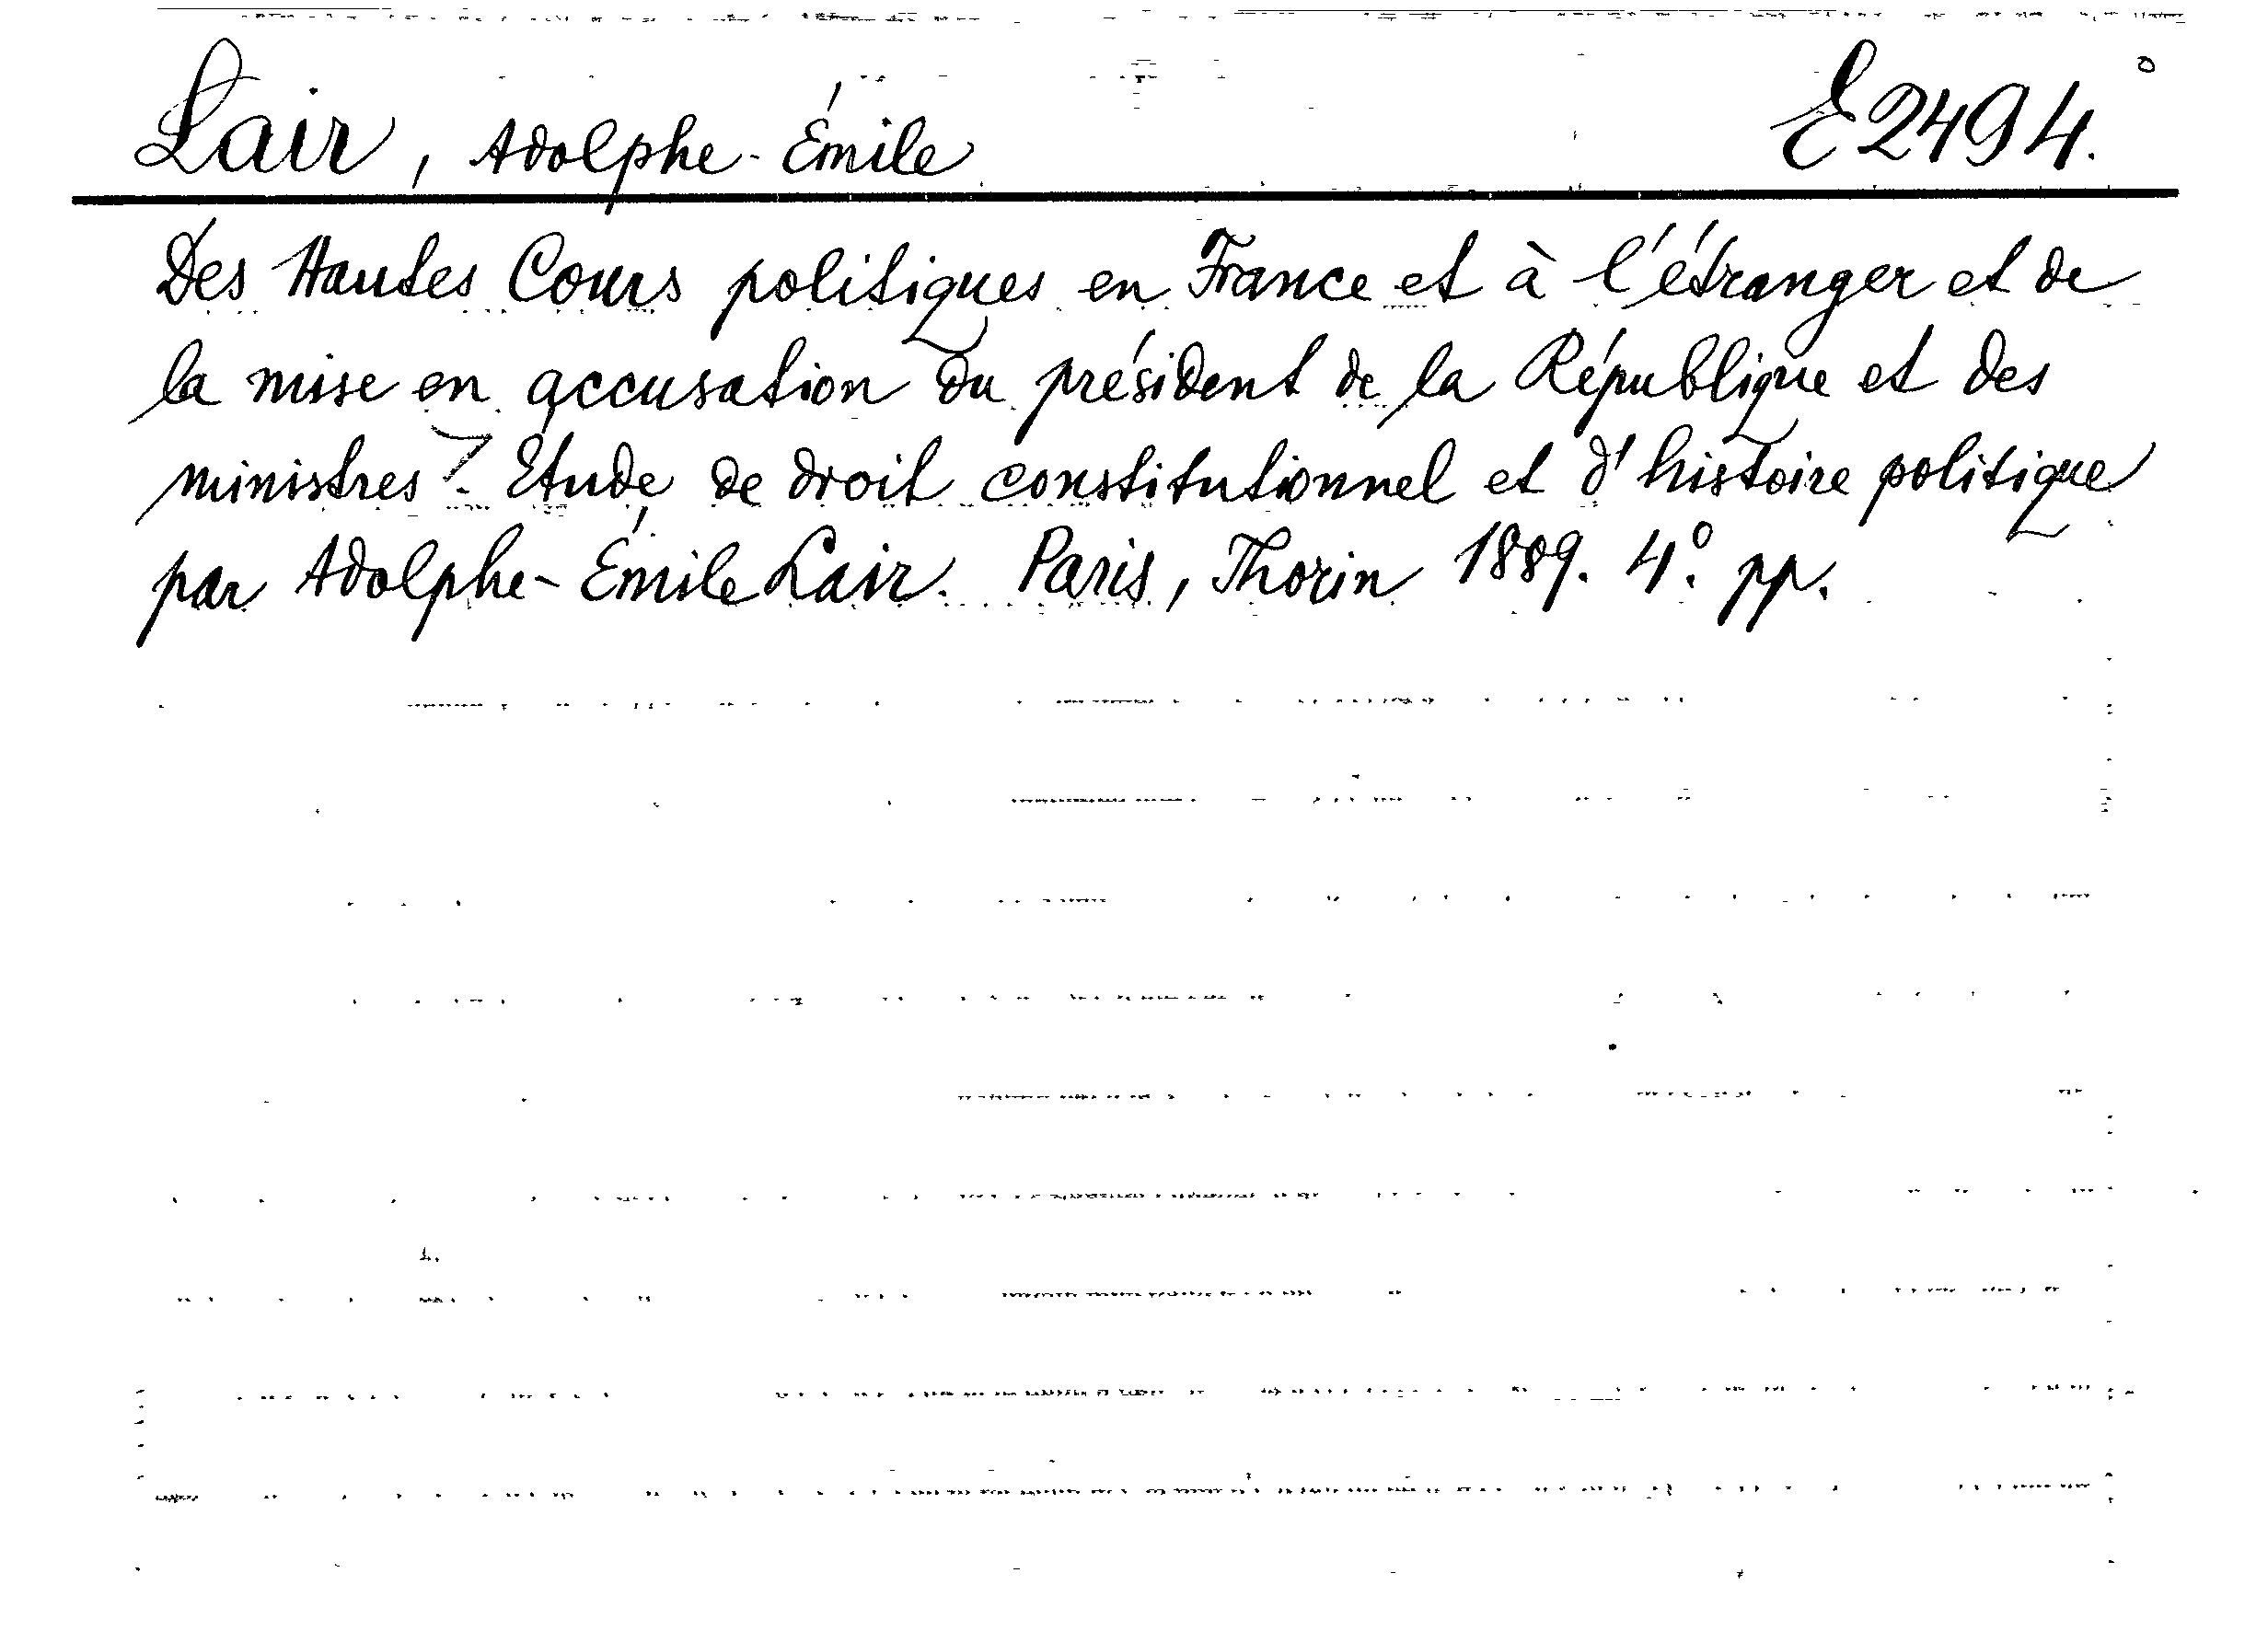 Lair, Adolphe-Émile E2494.
Des Hautes Cours politiques en France et à l'étranger et de
la mise en accusation du président de la République et des
ministres? Etude de droit constitutionnel et d'histoire politique
par Adolphe-Émile Lair. Paris, Thorin 1889. 4° pp.